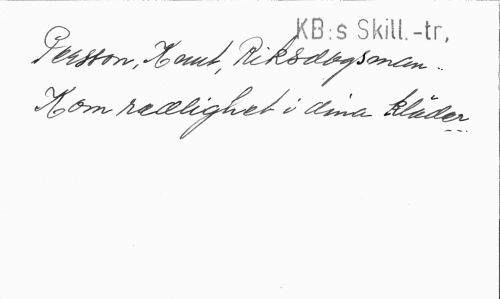 KB:s Skill.-tr,
Persson, Knut, Riksdagsman..
Kom redlighet i dina kläder